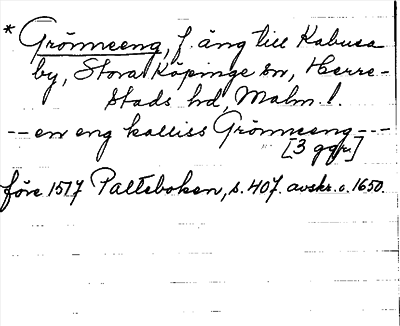 * Grönneeng, f. äng till Kabusa
by, Stora Köpinge sn, Herre-
stads hd, Malm. l.
-- en eng kalliss Grönneeng ---
[3 ggr]
före 1517 Palteboken, s. 407. avskr. c. 1650.